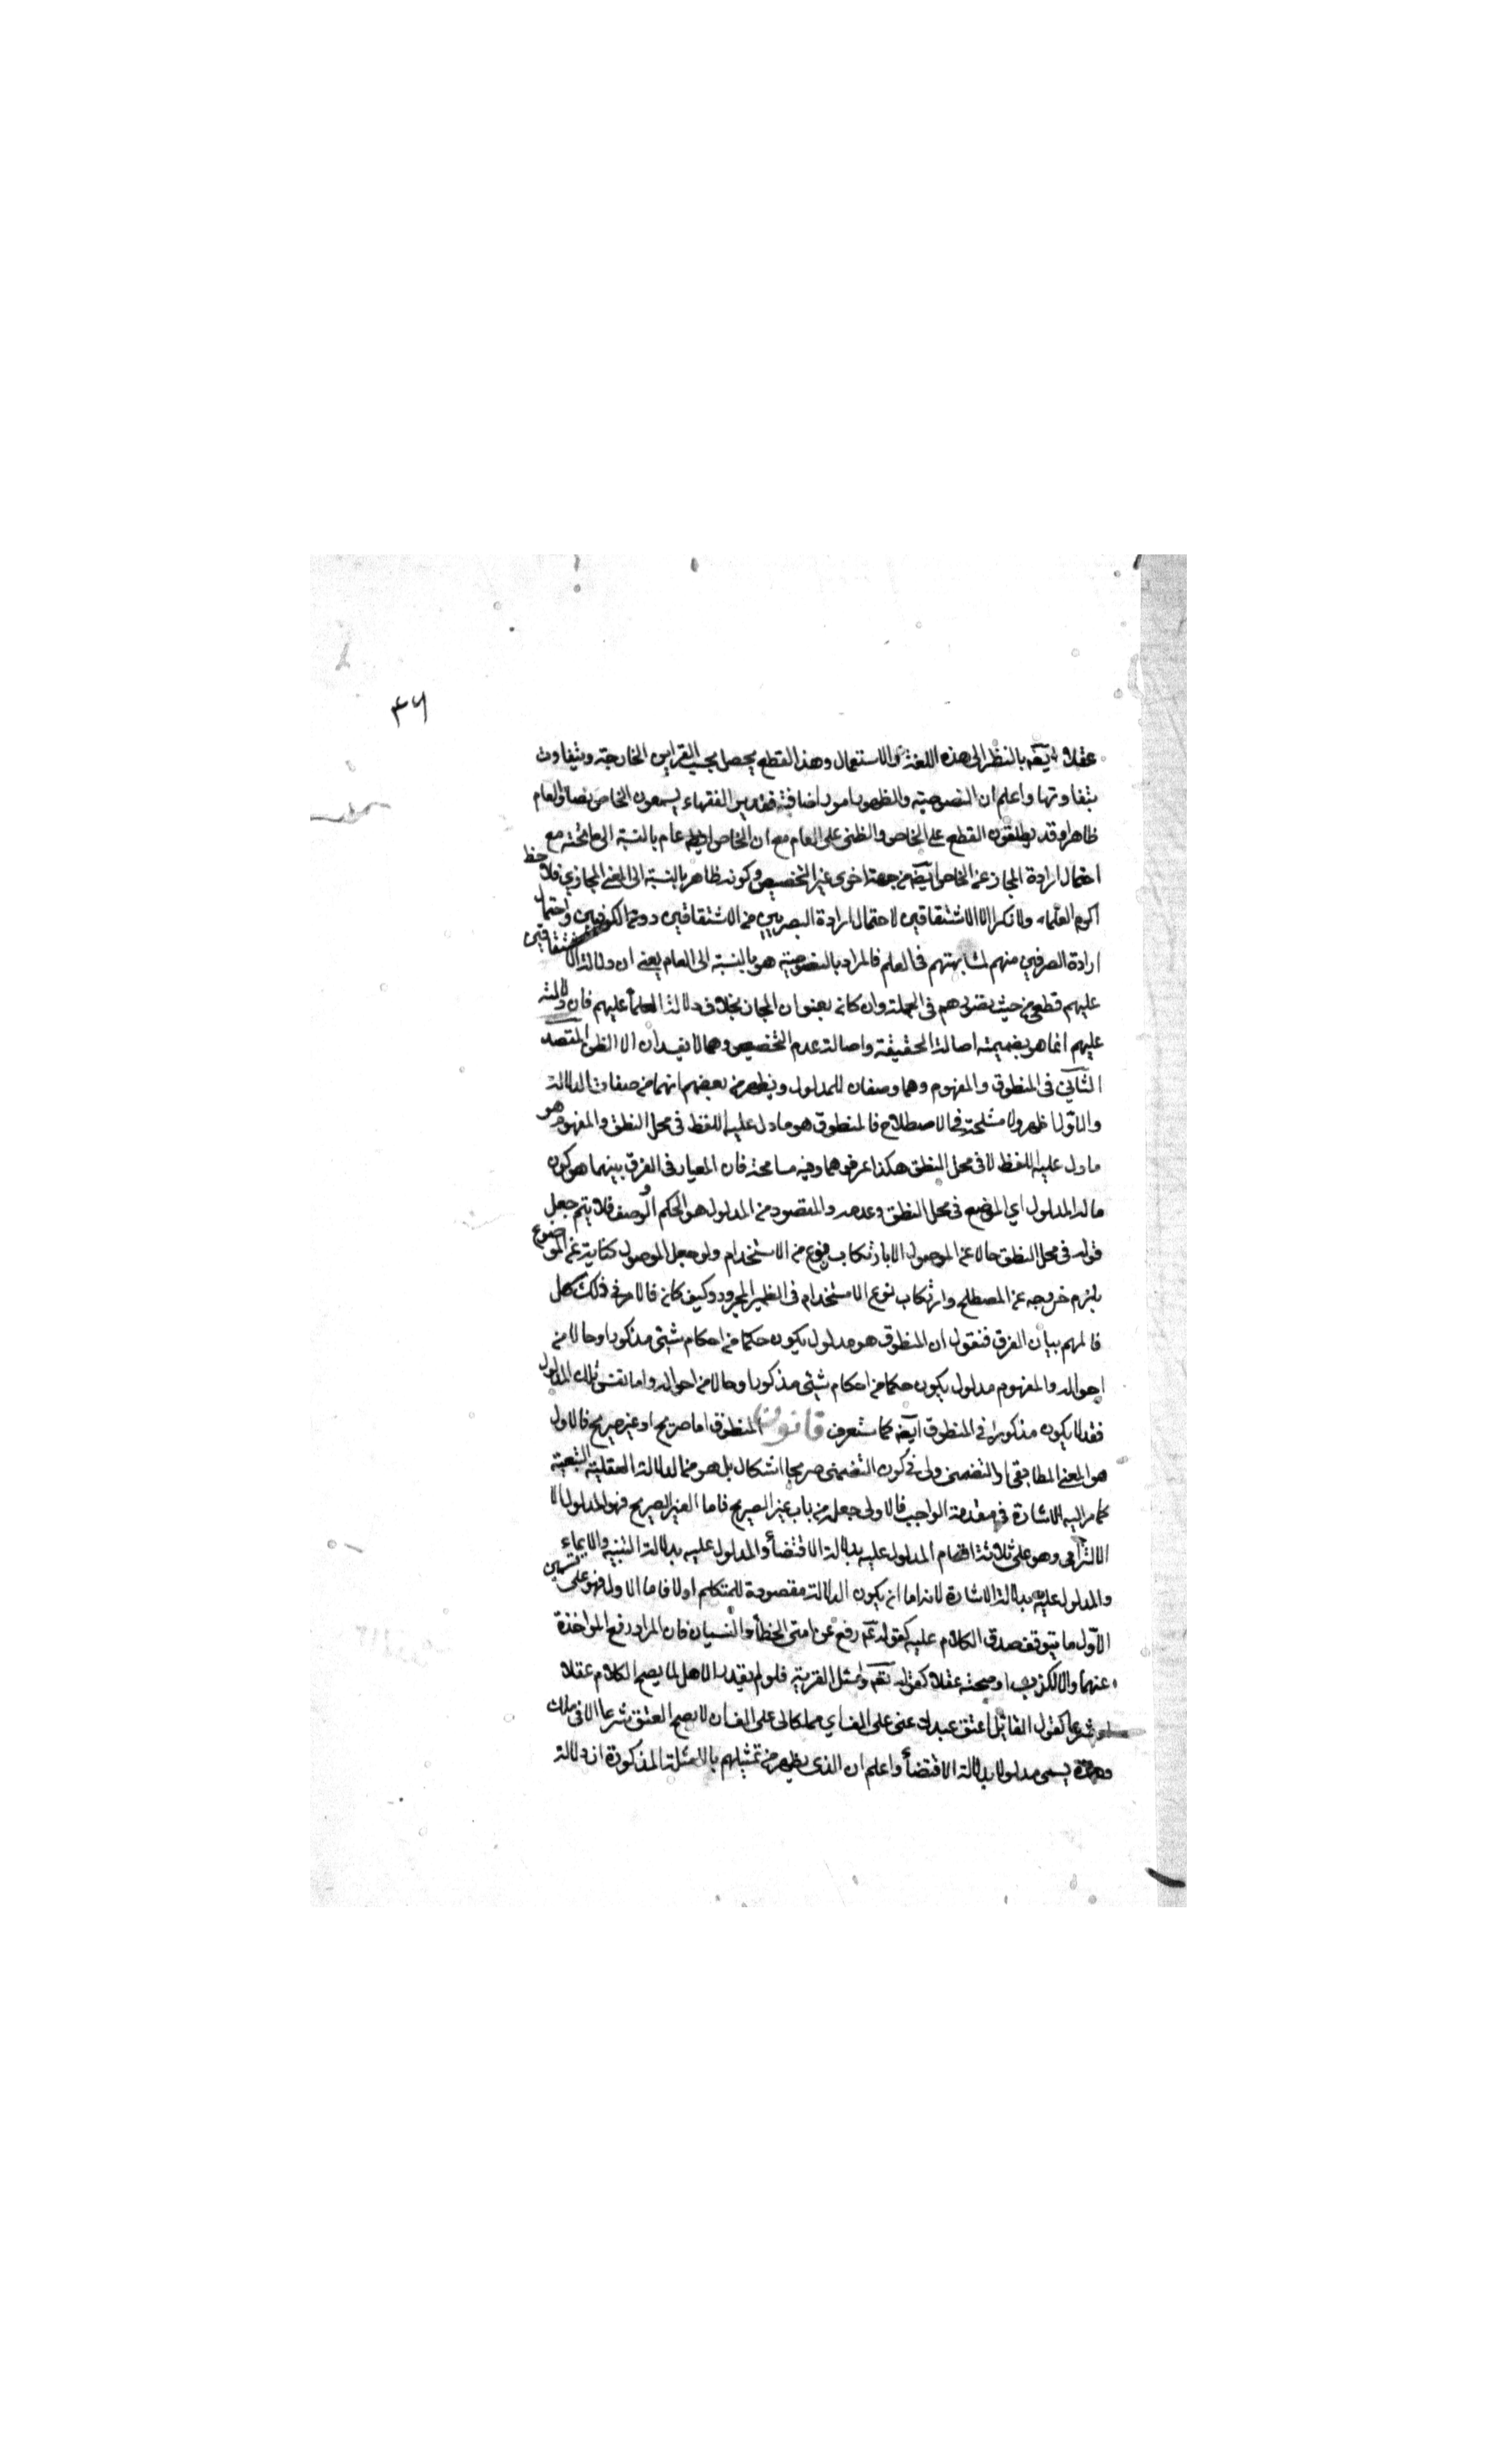 ٣٦
عقلا ايضا بالنظر الى هذه اللغة والاستعمال وهذا القطع يحصل بحسب القراين الخارجة ويتفاوت
بتفاوتها واعلم ان النصوصية والظهور امور اضافية فقد يرى الفقهاء يسمون الخاص نصا والعام
ظاهرا وقد يطلقون القطع على الخاص والظنى على العام مع ان الخاص ايضا عام بالنسبة الى ما تحته مع
احتمال ارادة المجاز عن الخاص ايضا من جهة اخرى غير التخصيص وكونه ظاهر بالنسبة الى المعنى المجازي فلاحظ
اكرم العلماء ولا تكرم الاشتقاقيين لاحتمال ارادة البصريين من الاشتقاقيين دون الكوفيين واحتمال
ارادة الصرفين منهم لمشابهتهم فى العلم فالمراد بالنصوصية هو بالنسبة الى العام يعنى ان دلالة الاشتقاقيين
عليهم قطعى من حيث هم فى الجملة وان كان بعنوان المجاز بخلاف دلالة العلمأ عليهم فان دلالته
عليهم انما هو بضميمة اصالة الحقيقة واصالة عدم التخصيص وهما لا يفيدان الا الظن المقصد
الثانى فى المنطوق والمفهوم وهما وصفان للمدلول ويظهر من بعضهم انهما من صفات الدلالة
والاول اظهر ولا مشاحة فى الاصطلاح فالمنطوق هو ما دل عليه اللفظ فى محل النطق والمفهوم هو
ما دل عليه اللفظ لا فى محل النطق هكذا عرفوهما وفيه مسامحة فان المعيار فى الفرق بينهما هو كون
ما له المدلول اي الموضوع فى محل النطق وعدمه والمقصود من المدلول هو الحكم او الوصف فلا يتم جعل
قوله فى محل النطق حالا عن الموصول الا بارتكاب نوع من الاستخدام ولو جعل الموصول كناية عن الموضوع
يلزم خروجه عن المصطلح وارتكاب نوع الاستخدام فى الضمير المجرور وكيف كان فالامر فى ذلك سهل
فالمهم بيان الفرق فنقول ان المنطوق هو مدلول يكون حكما من احكام شيئ مذكور او حالا من
احواله والمفهوم مدلول يكون حكما من احكام شيئ مذكور او حالا من احواله واما نفس ذلك المدلول
فقد لا يكون مذكورا فى المنطوق ايضا كما ستعرف قانون المنطوق اما صريح او غير صريح فالاول
هو المعنى المطابقى او التضمنى ولى فى كون التضمنى صريحا اشكال بل هو من الدلالة العقلية التبعية
كما مر اليه الاشارة فى مقدمة الواجب فالاولى جعله من باب غير الصريح فاما الغير الصريح فهو المدلول الا
الالتزامى وهو على ثلاثة اقسام المدلول عليه بدلالة الاقتضأ والمدلول عليه بدلالة التنبيه والايماء
والمدلول عليه بدلالة الاشارة لانه اما ان يكون الدلالة مقصودة للمتكلم اولا فاما الاول فهو على قسمين
الاول ما يتوقف صدق الكلام عليه كقوله رفع عن امتى الخطأ والنسيان فان المراد رفع المؤاخذة
عنهما والا لكذب او صحته عقلا كقوله تعالى واسئل القرية فلو لم يقدر الاهل لما يصح الكلام عقلا
او شرعا كقول القائل اعتق عبدك عنى على الف اي مملكا لى على الف لان لا يصح العتق شرعا الا فى ملك
وهذا يسمى مدلولا بدلالة الاقتضأ واعلم ان الذى يظهر من تمثيلهم بالامثلة المذكورة ان دلالة